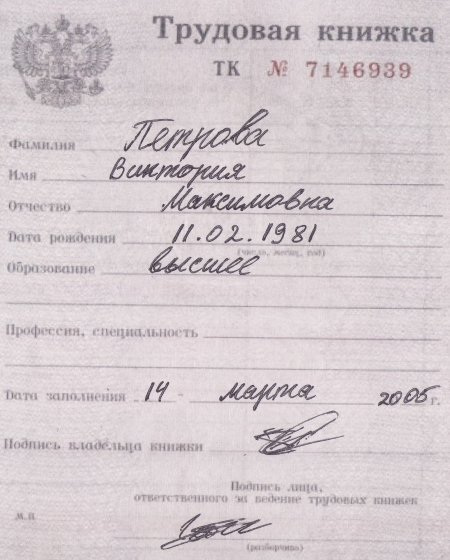 Трудовая книжка
ТК № 7146939
Фамилия Петрова
Имя Виктория
Отчество Максимовна
Дата рождения 11.02.1981
(число, месяц, год)
Образование высшее
Профессия, специальность
Дата заполнения 14 марта 2005 г.
Подпись владельца книжки
Подпись лица,
ответственного за ведение трудовых книжек
М.П.
(разборчиво)